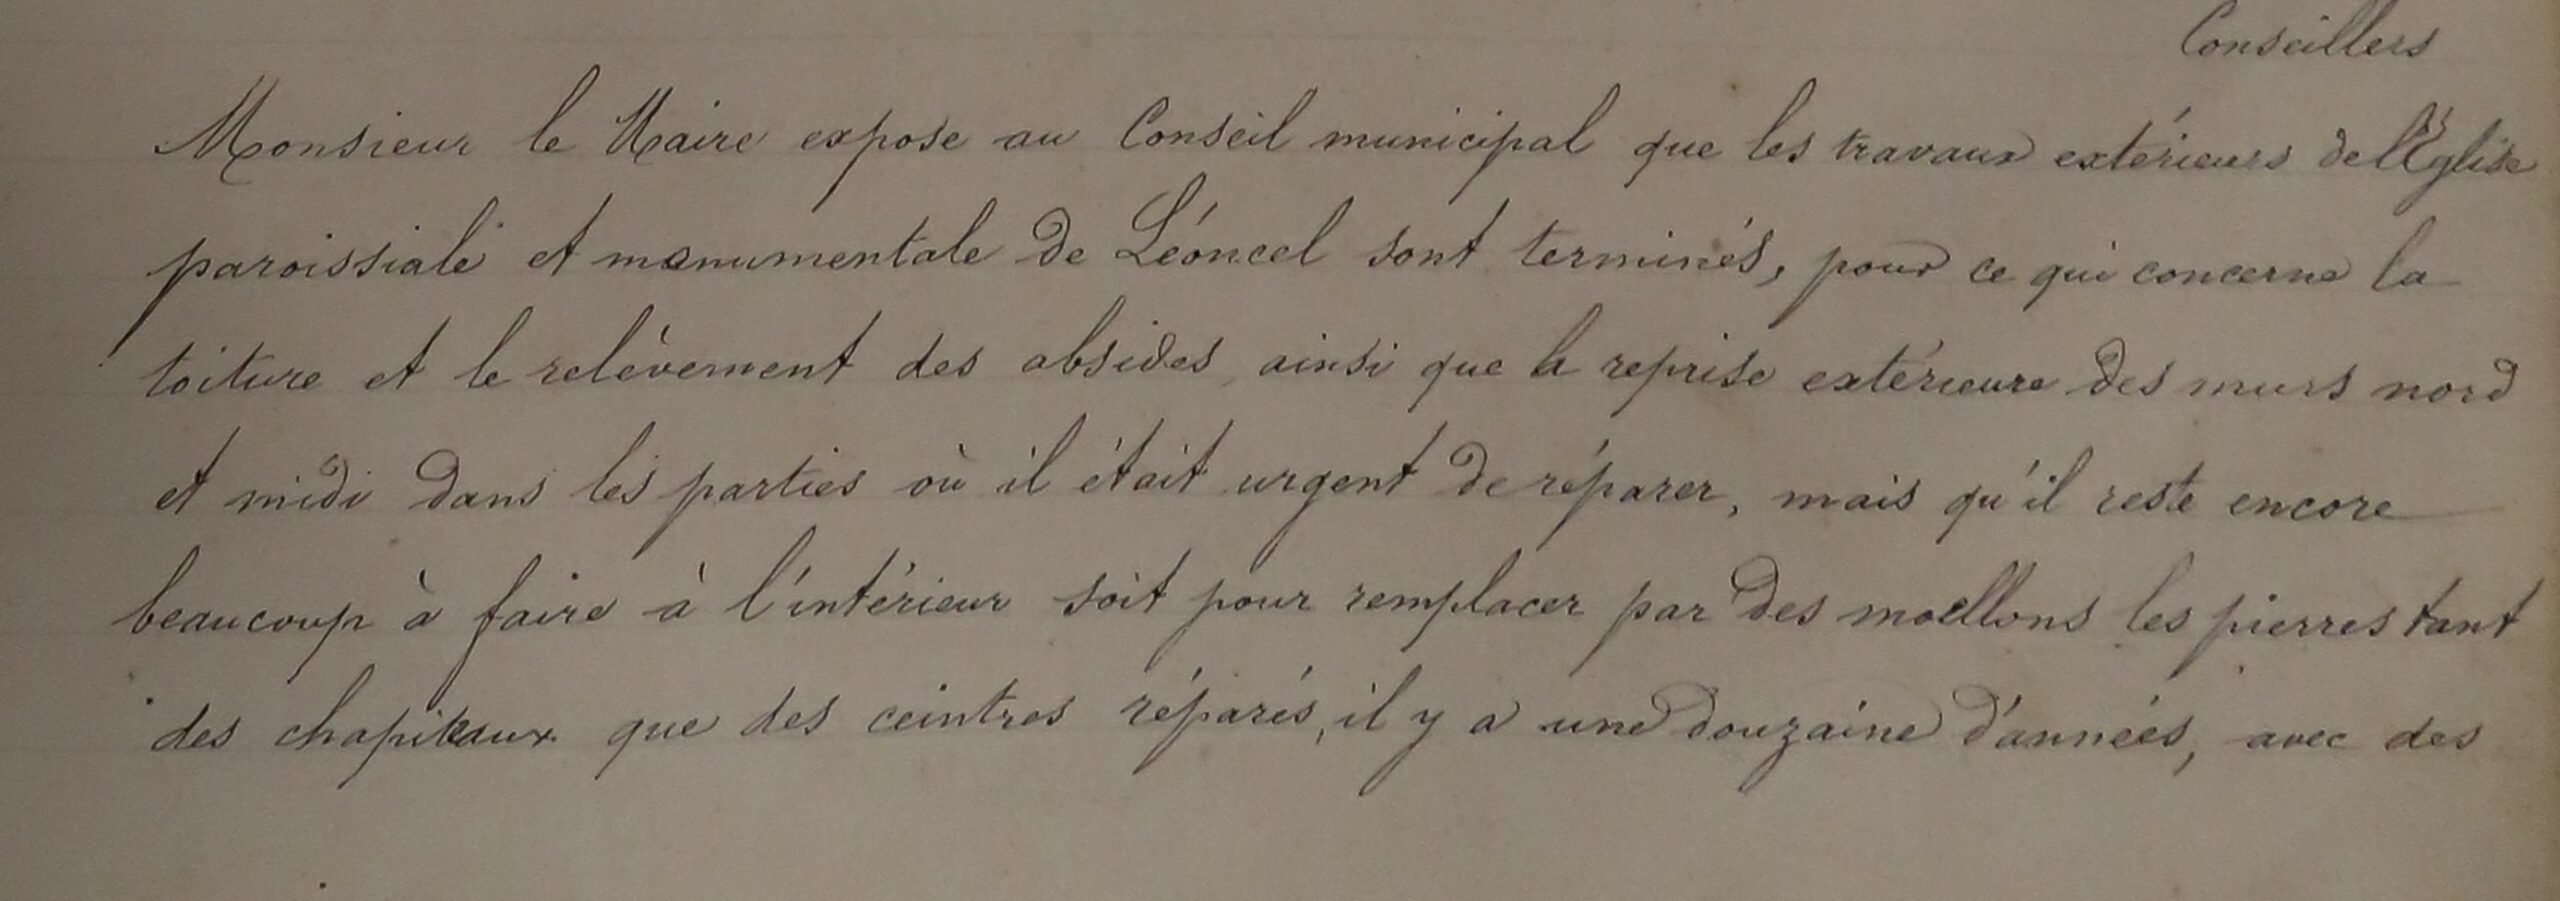 Conseillers
Monsieur le Maire expose au Conseil municipal que les travaux extérieurs de l'Eglise
paroissiale et monumentale de Léoncel sont terminés, pour ce qui concerne la
toiture et le relèvement des absides, ainsi que la reprise extérieure des murs nord
et midi dans les parties où il était urgent de réparer, mais qu'il reste encore
beaucoup à faire à l'intérieur soit pour remplacer par des moellons les pierres tant
des chapiteaux que des ceintres réparés, il y a une douzaine d'années, avec des